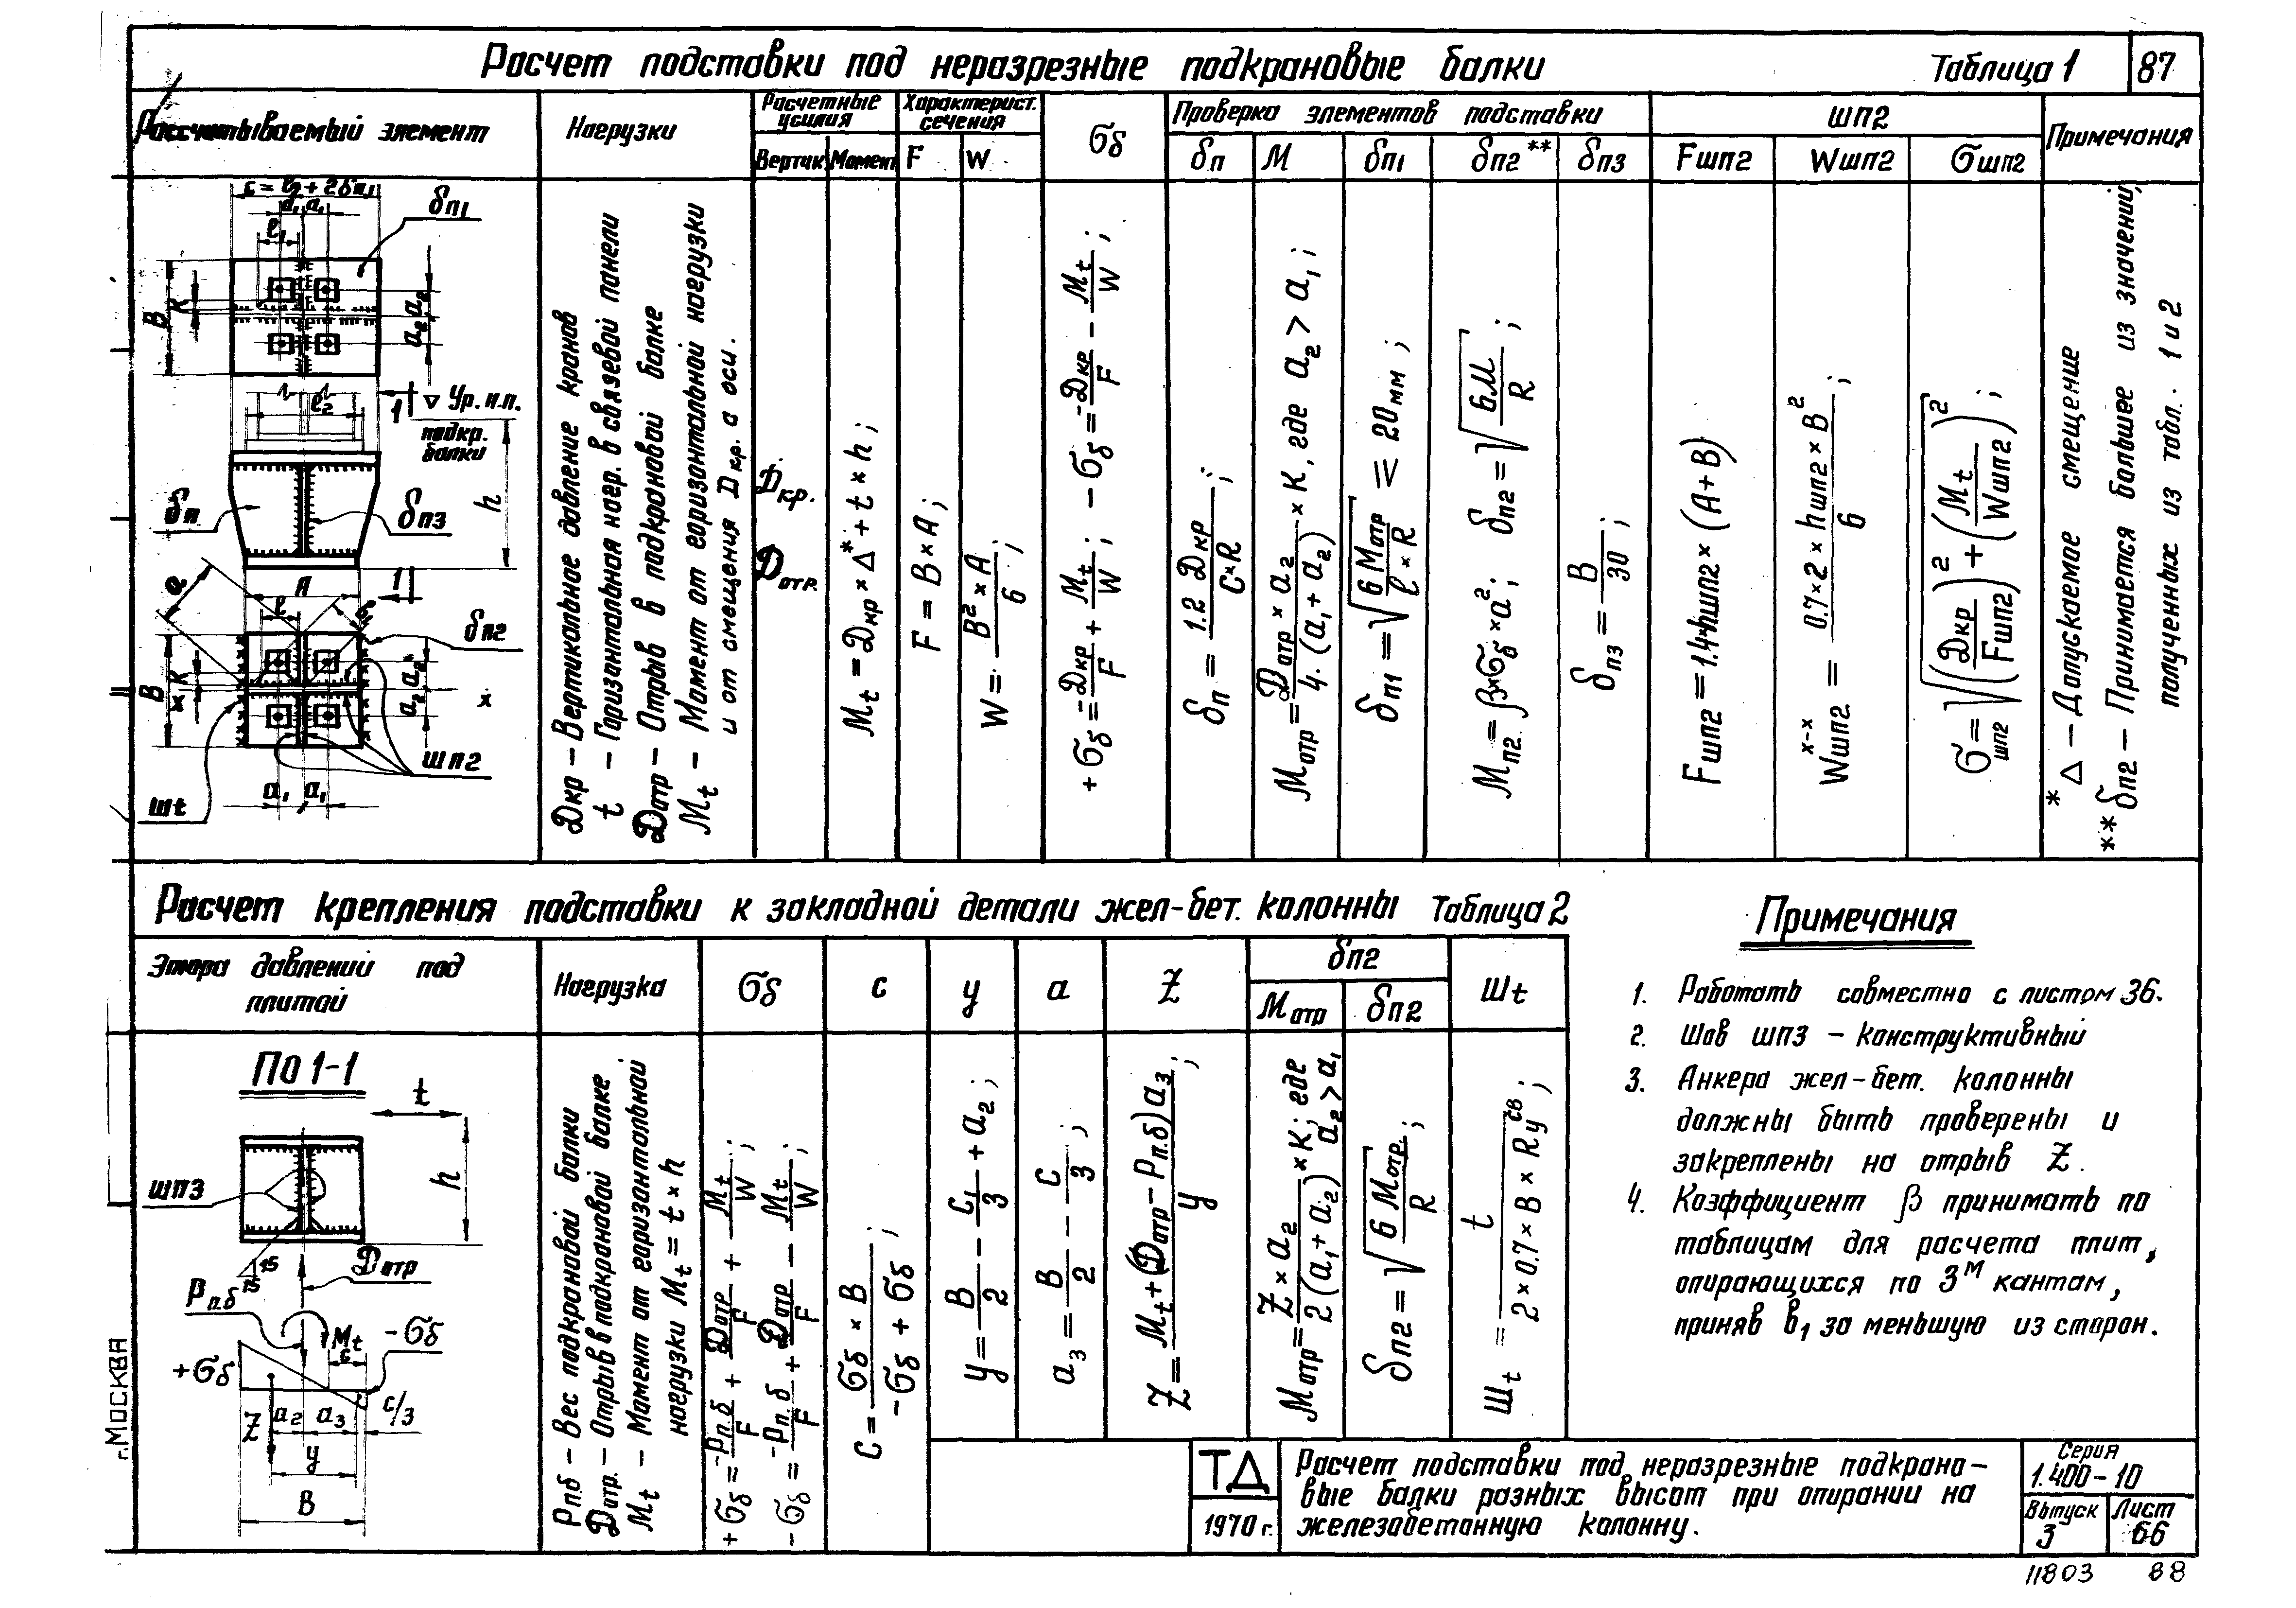 Расчет подставки под неразрезные подкрановые балки
Таблица 1
87
Рассчитываемый элемент
Нагрузки
Расчетные усилия
Вертик.
Момент
Характерист. сечения
F
W
σб
Проверка элементов подставки
δп
M
δп1
δп2**
δп3
шп2
Fшп2
Wшп2
σшп2
Примечания
c = ℓ2 + 2δп1
a1 a1
ℓ1
δп1
B
K
a2 a2
ℓ2
1
▽ Ур. н.п. подкр. балки
δп
δп3
h
A
1
a
ℓ
δп2
B
K
x
a2 a2
x
шп2
a1 a1
шt
Дкр – Вертикальное давление кранов
t – Горизонтальная нагр. в связевой панели
Дотр – Отрыв в подкрановой балке
Mt – Момент от горизонтальной нагрузки
и от смещения Dкр. с оси.
Дкр.
Дотр.
Mt = Дкр × Δ* + t × h;
F = B × A;
W = B² × A / 6;
+σб = -Дкр/F + Mt/W; -σб = -Дкр/F - Mt/W;
δп = 1.2 Дкр / C × R;
Mотр = Дотр × a2 / 4·(a1 + a2) × K, где a2 > a1;
δп1 = √(6 Mотр / ℓ × R) ⩽ 20 мм;
Mп2 = β × σб × a²; δп2 = √(6M / R);
δп3 = B / 30;
Fшп2 = 1.4 × hшп2 × (A + B)
Wшп2 x-x = 0.7 × 2 × hшп2 × B² / 6;
σшп2 = √((Дкр / Fшп2)² + (Mt / Wшп2)²);
* Δ – Допускаемое смещение
** δп2 – Принимается большее из значений,
полученных из табл. 1 и 2
Расчет крепления подставки к закладной детали жел-бет. колонны Таблица 2
Эпюра давлений под плитой
Нагрузка
σб
c
y
a
Z
δп2
Mотр
δп2
Шt
По 1-1
t
шп3
h
15
15
Дотр
Pп.б
Mt
c
-σб
+σб
Z
a2 a3
c/3
y
B
Pп.б – Вес подкрановой балки
Дотр. – Отрыв в подкрановой балке
Mt – Момент от горизонтальной
нагрузки Mt = t × h
+σб = -Pп.б/F + Дотр/F + Mt/W;
-σб = -Pп.б/F + Дотр/F - Mt/W;
C = σб × B / -σб + σб;
y = B/2 - C1/3 + a2;
a3 = B/2 - C/3;
Z = Mt + (Дотр - Pп.б) a3 / y;
Mотр = Z × a2 / 2 (a1 + a2) × K; где a2 > a1
δп2 = √(6 Mотр. / R);
Шt = t / 2 × 0.7 × B × Ryсв;
Примечания
1. Работать совместно с листом 36.
2. Шов шп3 – конструктивный
3. Анкера жел-бет. колонны
должны быть проверены и
закреплены на отрыв Z.
4. Коэффициент β принимать по
таблицам для расчета плит,
опирающихся по 3м кантам,
приняв в1 за меньшую из сторон.
г. Москва
ТД
1970 г.
Расчет подставки под неразрезные подкрано-
вые балки разных высот при опирании на
железобетонную колонну.
Серия
1.400-10
Выпуск
3
Лист
66
11803
88